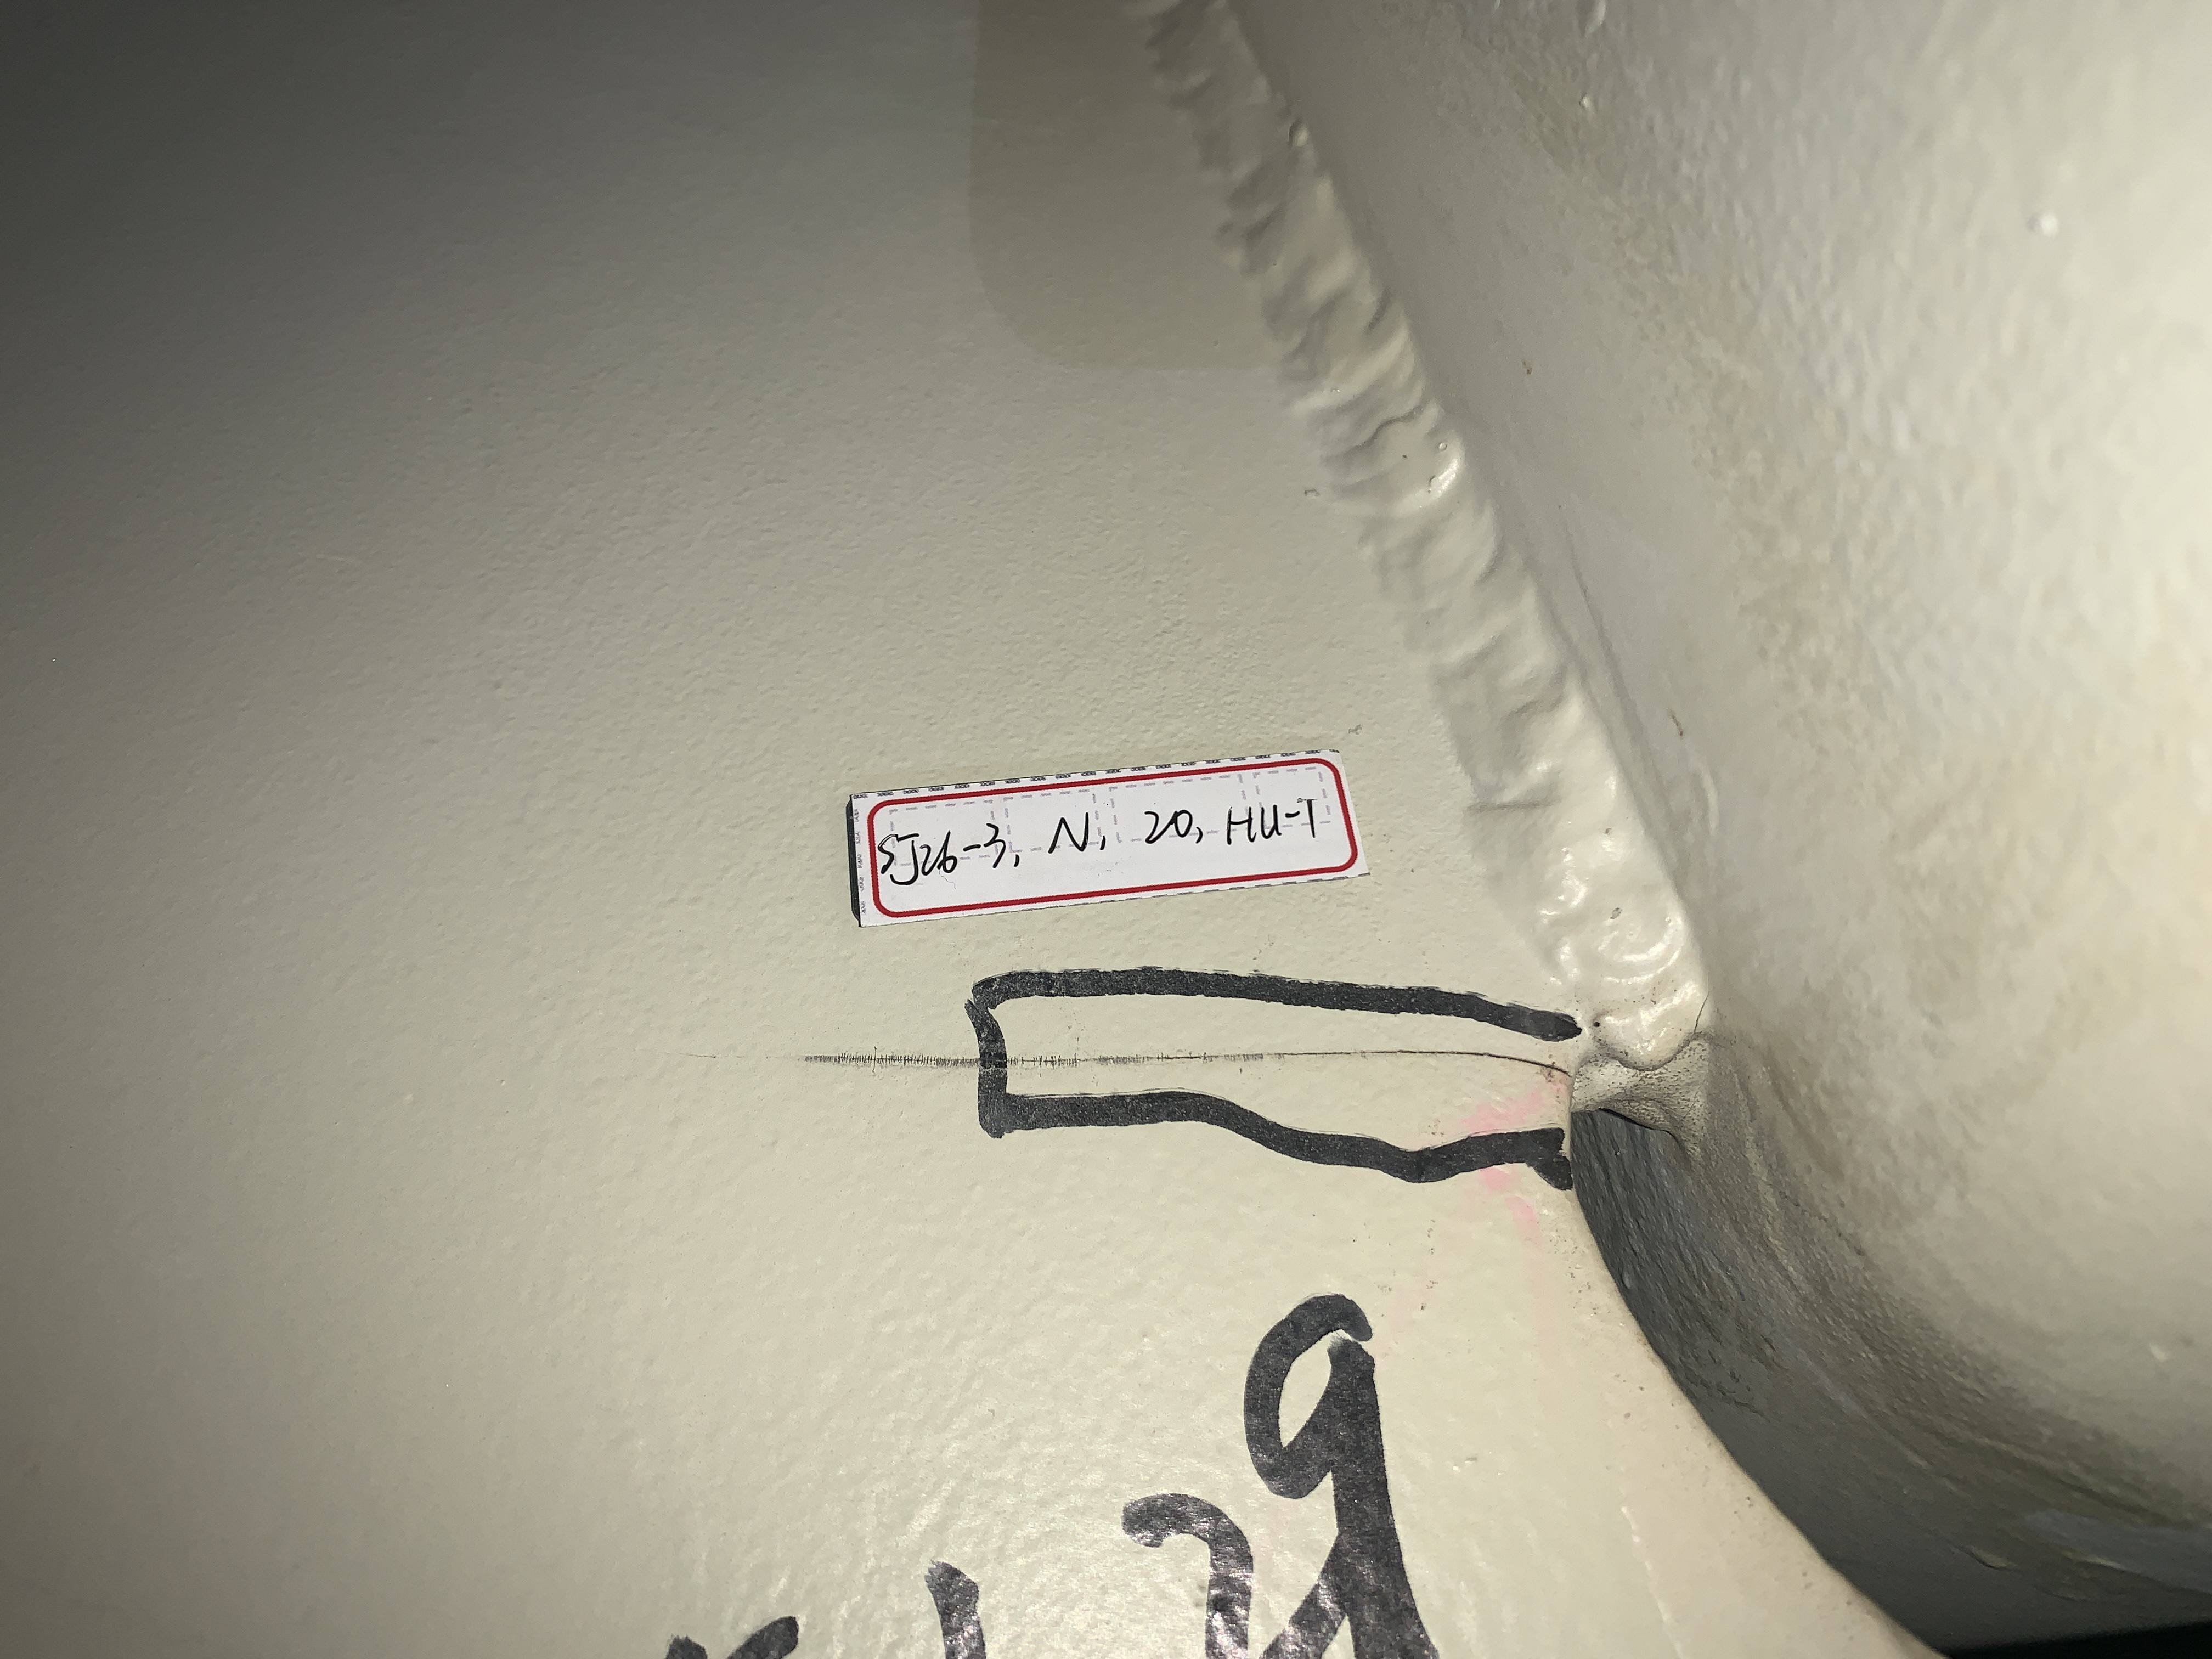 SJ26-3, N, 20, HU-T
9